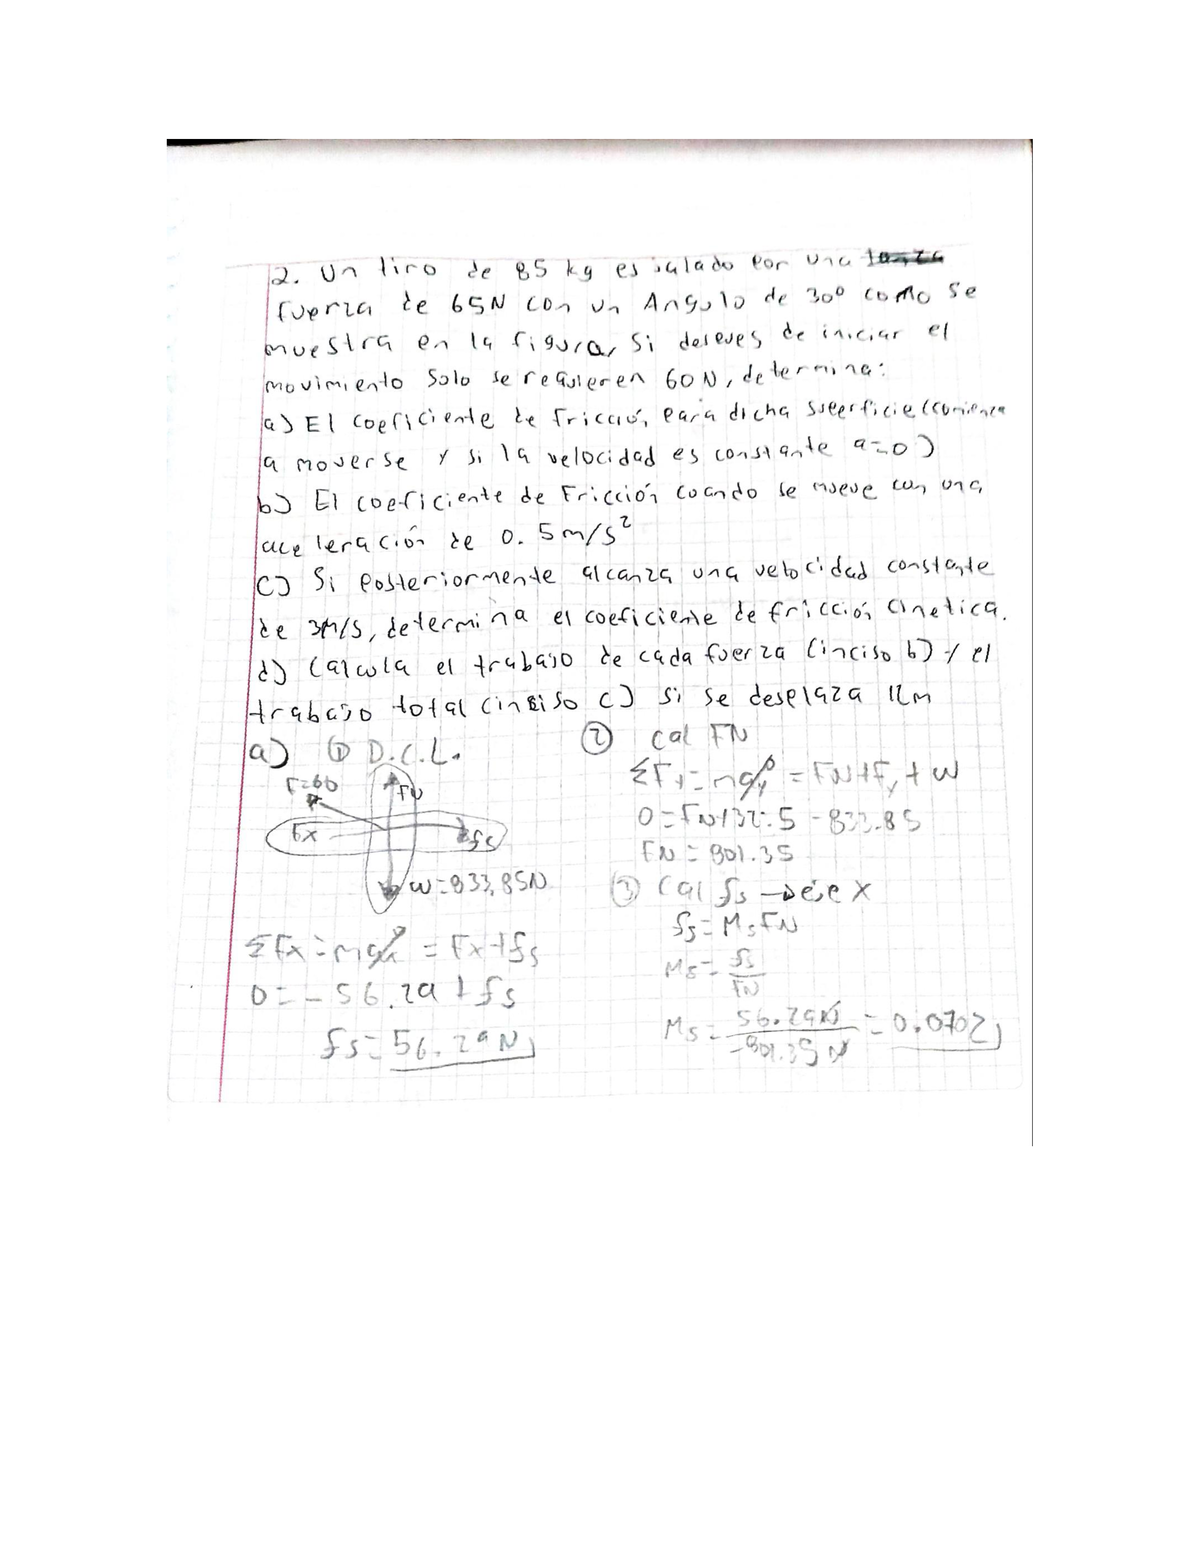 2. Un tiro de 85 kg es jalado por una
fuerza de 65N con un Angulo de 30° como se
muestra en la figura, si deseves de iniciar el
movimiento solo se requieren 60N, determina:
a) El coeficiente de fricción, para dicha superficie (comienza
a moverse y si la velocidad es constante a=0)
b) El coeficiente de Fricción cuando se mueve con una
aceleración de 0.5m/s²
c) Si posteriormente alcanza una velocidad constante
de 3m/s, determina el coeficiente de fricción cinetica.
d) Calcula el trabajo de cada fuerza (inciso b) y el
trabajo total (inciso c) si se desplaza 12m
a) ① D.C.L.
F=60
FN
Fx
fs
w=833,85N
ΣFx=max = Fx+fs
0=-56.29+fs
fs=56.29N
② Cal FN
ΣFy=may = FN+Fy+w
0=FN+32.5-833.85
FN=801.35
③ Cal fs → eje x
fs=MsFN
Ms=fs/FN
Ms=56.29N/801.35N=0.0702